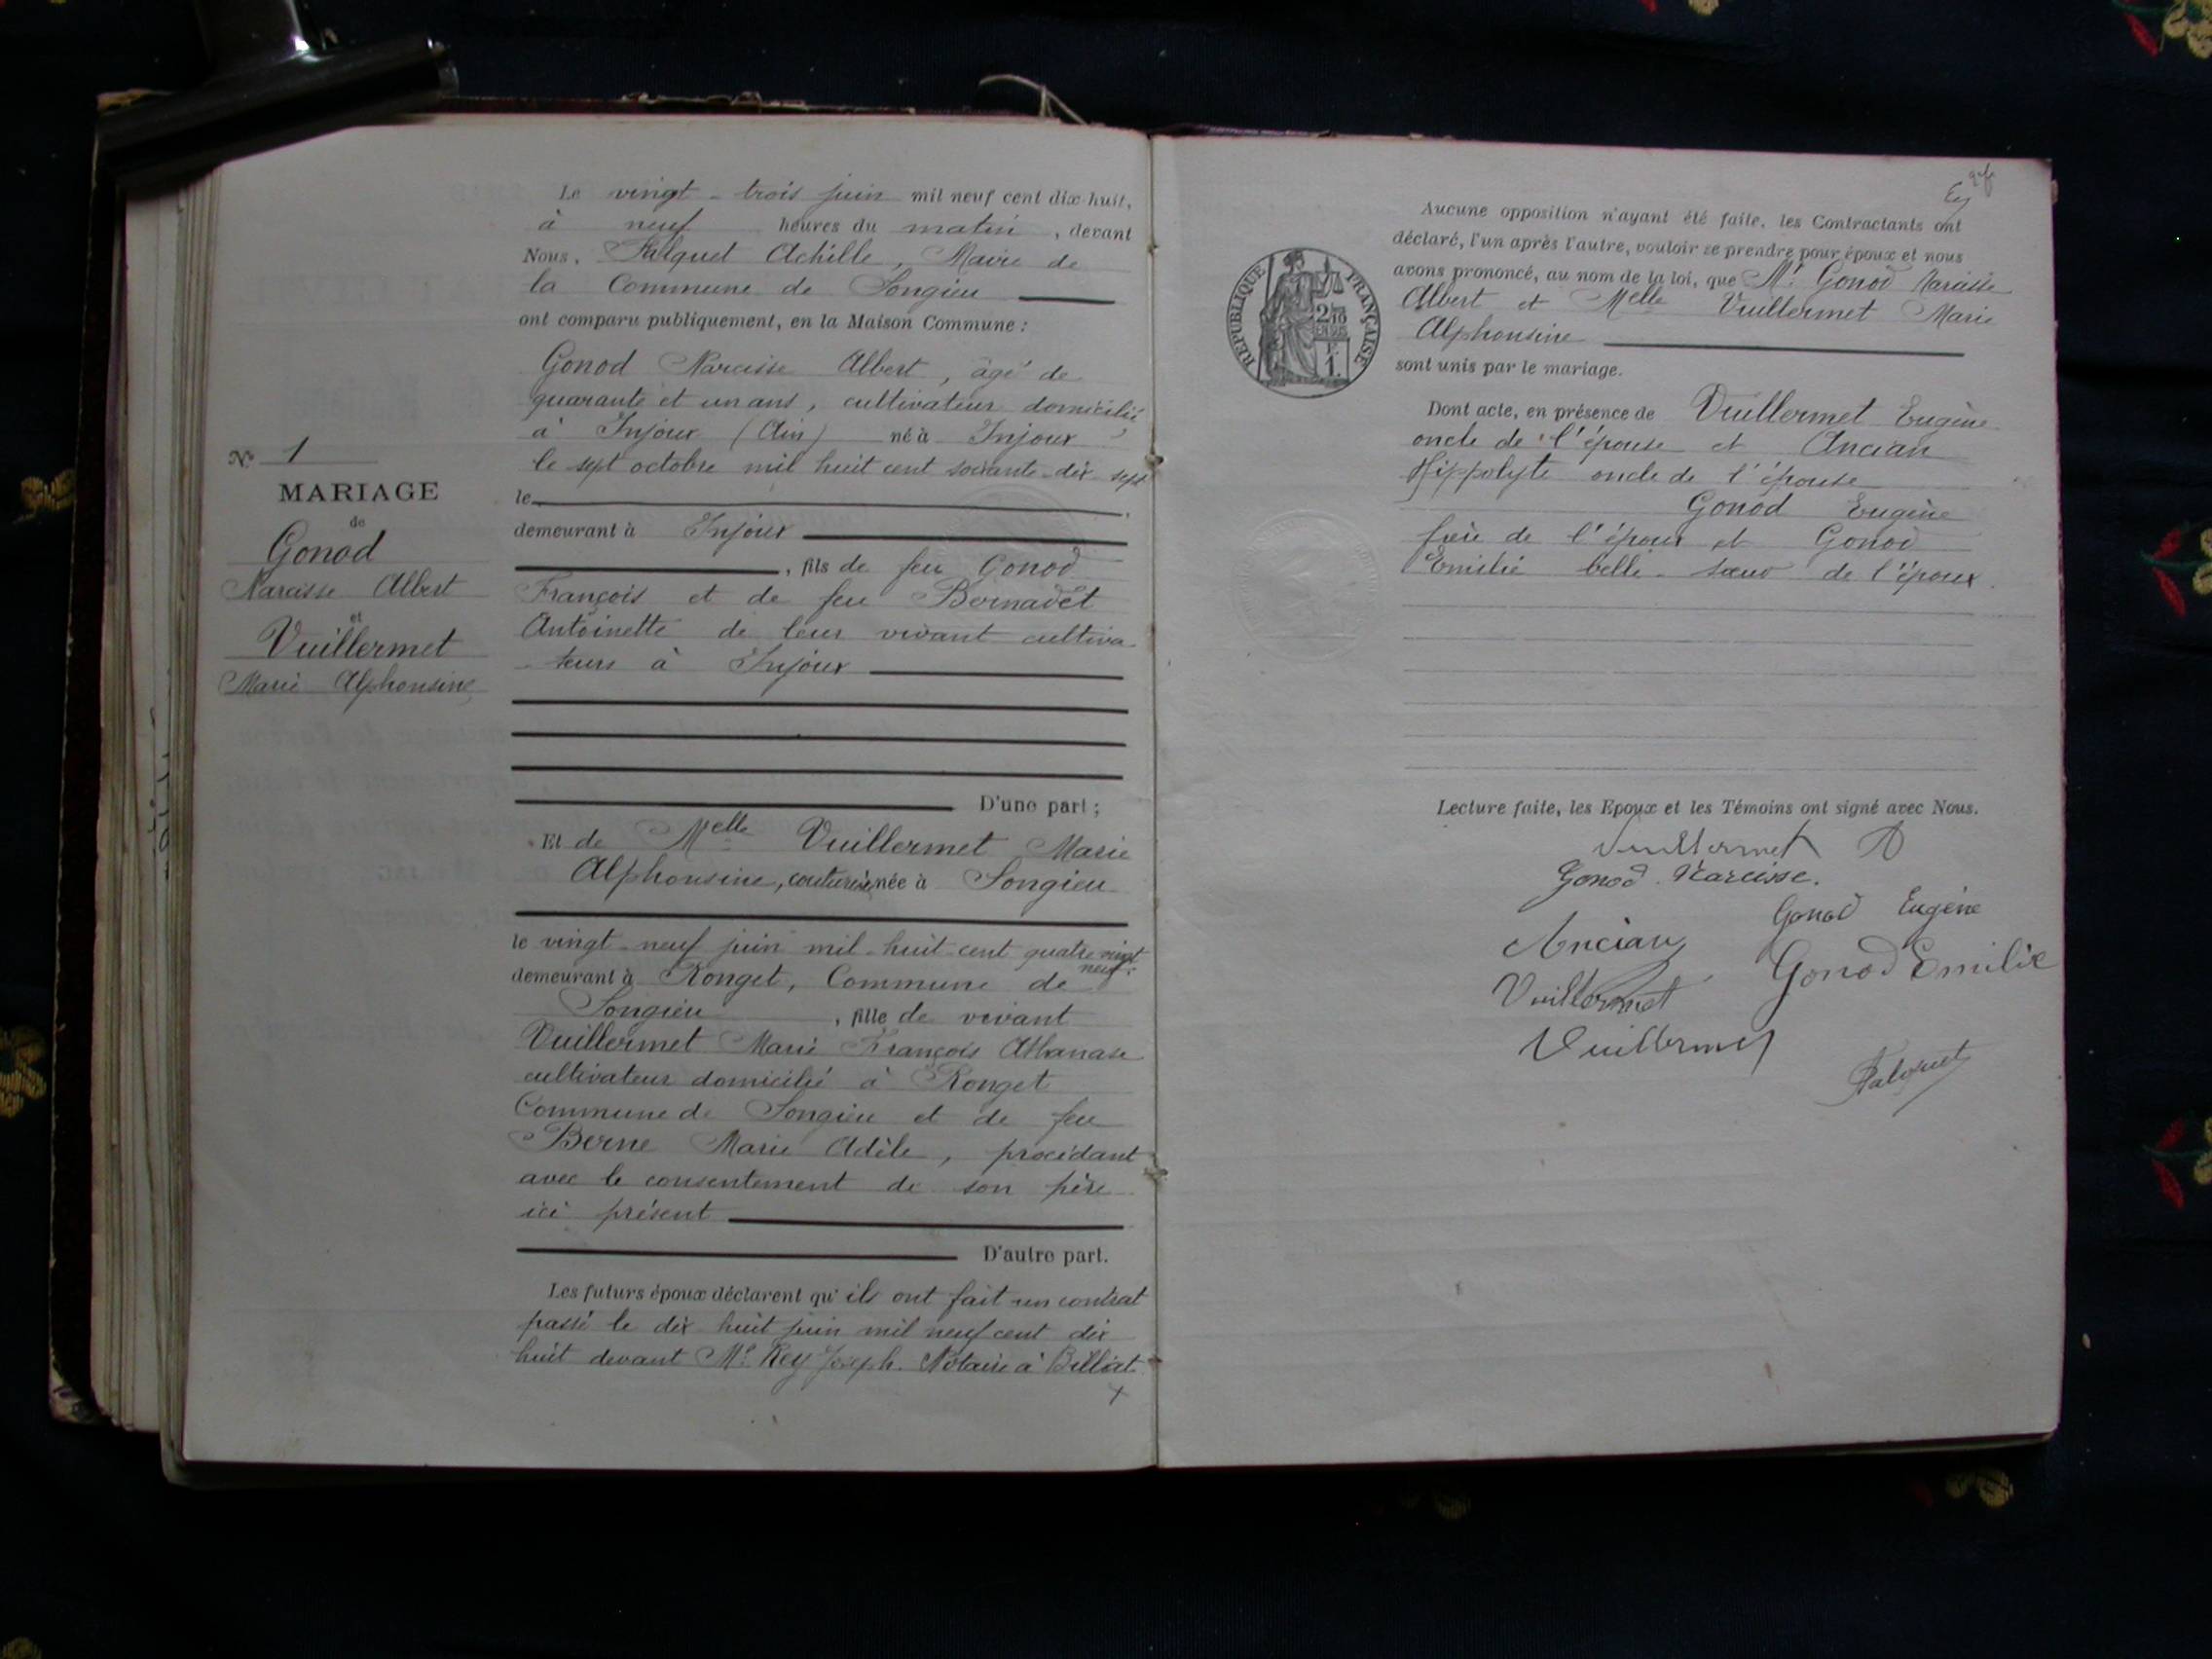 Le vingt-trois juin mil neuf cent dix-huit,
à neuf heures du matin, devant
Nous, Falquet Achille, Maire de
la Commune de Songieu
ont comparu publiquement, en la Maison Commune :
Gonod Narcisse Albert, âgé de
quarante et un ans, cultivateur domicilié
à Injoux (Ain) né à Injoux
le sept octobre mil huit cent soixante-dix-sept
le
demeurant à Injoux
, fils de feu Gonod
François et de feu Bornadet
Antoinette de leur vivant cultiva-
teurs à Injoux
D'une part ;
Et de Melle Vuillermet Marie
Alphonsine, couturière née à Songieu
le vingt-neuf juin mil-huit-cent quatre vingt
neuf
demeurant à Ronget, Commune de
Songieu, fille de vivant
Vuillermet Marie François Athanase
cultivateur domicilié à Ronget
Commune de Songieu et de feu
Berne Marie Adèle, procédant
avec le consentement de son père
ici présent
D'autre part.
Les futurs époux déclarent qu'ils ont fait un contrat
passé le dix huit juin mil neuf cent dix
huit devant Me Rey Joseph. Notaire à Billiat
N° 1
MARIAGE
de
Gonod
Narcisse Albert
et
Vuillermet
Marie Alphonsine
Aucune opposition n'ayant été faite, les Contractants ont
déclaré, l'un après l'autre, vouloir se prendre pour époux et nous
avons prononcé, au nom de la loi, que Mr. Gonod Narcisse
Albert et Melle Vuillermet Marie
Alphonsine
sont unis par le mariage.
RÉPUBLIQUE FRANÇAISE
Dont acte, en présence de Vuillermet Eugène
oncle de l'épouse et Ancian
Hippolyte oncle de l'épouse
Gonod Eugène
frère de l'époux et Gonod
Emilie belle-sœur de l'époux.
Lecture faite, les Epoux et les Témoins ont signé avec Nous.
Vuillermet A
Gonod Narcisse.
Gonod Eugène
Ancian
Gonod Emilie
Vuillermet
Vuillermet
Falquet